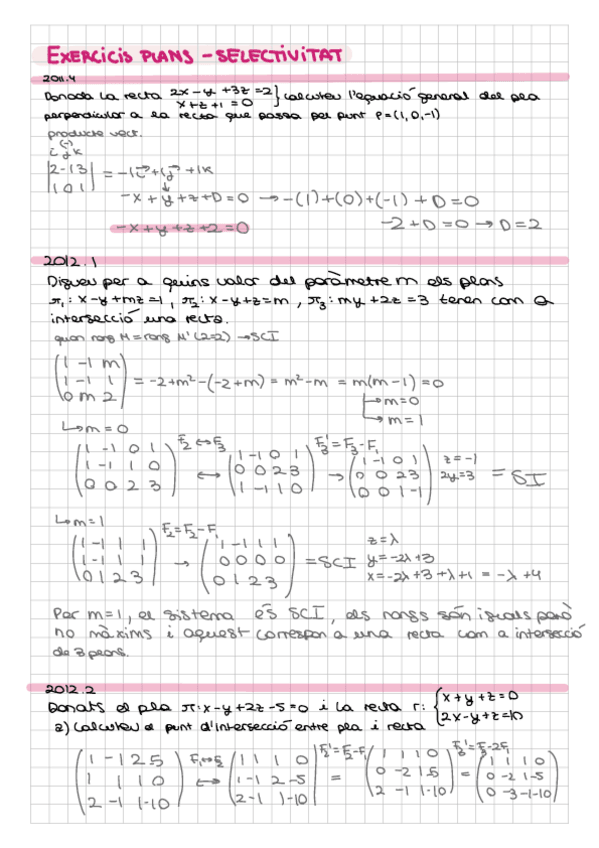 EXERCICIS PLANS - SELECTIVITAT
2011.4
Donada la recta 2x - y + 3z = 2
x + z + 1 = 0 } calculeu l'equació general del pla
perpendicular a la recta que passa pel punt P = (1, 0, -1)
producte vect.
(-)
i j k
|2 -1 3|
|1 0 1| = -1i + 1j + 1k
-x + y + z + D = 0 → -(1) + (0) + (-1) + D = 0
-x + y + z + 2 = 0
-2 + D = 0 → D = 2
2012.1
Digueu per a quins valor del paràmetre m els plans
π1: x - y + mz = 1, π2: x - y + z = m, π3: my + 2z = 3 tenen com a
intersecció una recta.
quan rang M = rang M' (2=2) → SCI
(1 -1 m)
(1 -1 1) = -2 + m² - (-2 + m) = m² - m = m(m - 1) = 0
(0 m 2)
↳ m = 0
↳ m = 1
↳ m = 0
F2 ↔ F3
F3' = F3 - F1
(1 -1 0 1) (1 -1 0 1) (1 -1 0 1) z = -1
(1 -1 1 0) ↔ (0 0 2 3) → (0 0 2 3) 2y = 3 = SI
(0 0 2 3) (1 -1 1 0) (0 0 1 -1)
↳ m = 1
F2 = F2 - F1
(1 -1 1 1) (1 -1 1 1) z = λ
(1 -1 1 1) → (0 0 0 0) = SCI y = -2λ + 3
(0 1 2 3) (0 1 2 3) x = -2λ + 3 + λ + 1 = -λ + 4
Per m = 1, el sistema és SCI, els rangs són iguals però
no màxims i aquest correspon a una recta com a intersecció
de 3 plans.
2012.2
Donats el pla π: x - y + 2z - 5 = 0 i la recta r: { x + y + z = 0
2x - y + z = 10
a) Calculeu el punt d'intersecció entre pla i recta
F2' = F2 - F1
F3' = F3 - 2F1
(1 -1 2 5) (1 1 1 0) (1 1 1 0) (1 1 1 0)
(1 1 1 0) ↔ (1 -1 2 -5) = (0 -2 1 -5) = (0 -2 1 -5)
(2 -1 1 -10) (2 -1 1 -10) (2 -1 1 -10) (0 -3 -1 -10)